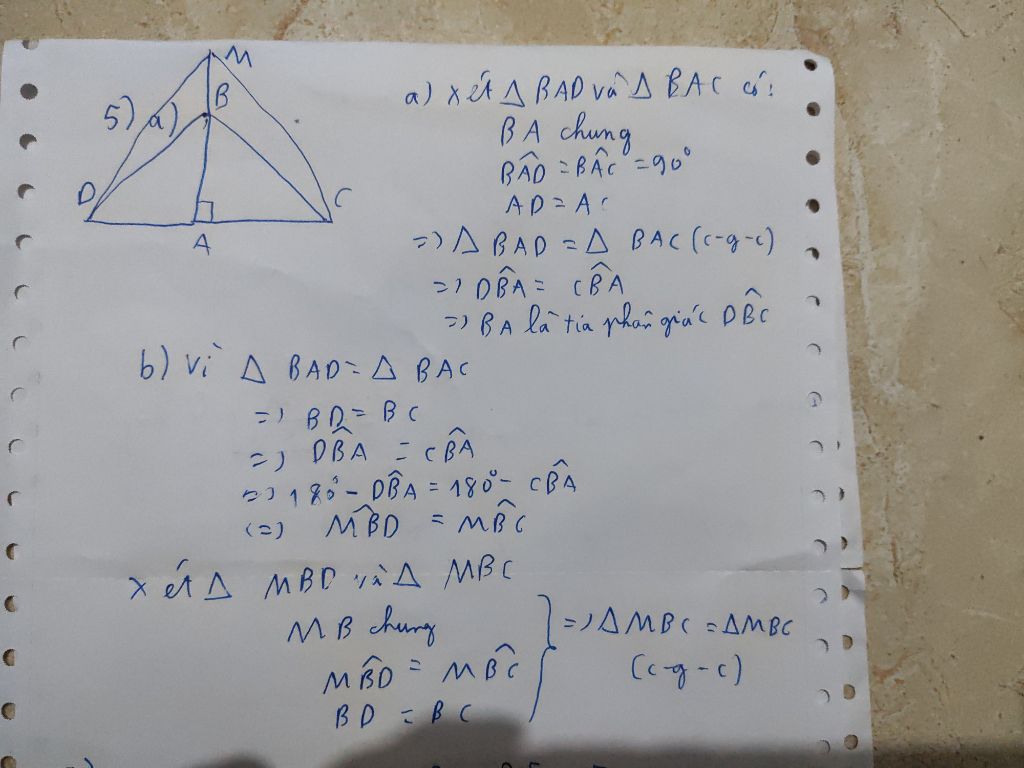 M
B
5) a)
D
C
A
a) xét Δ BAD và Δ BAC có:
BA chung
BÂD = BÂC = 90°
AD = AC
=) Δ BAD = Δ BAC (c-g-c)
=) DB̂A = CB̂A
=) BA là tia phân giác DB̂C
b) Vì Δ BAD = Δ BAC
=) BD = BC
=) DB̂A = CB̂A
=) 180° - DB̂A = 180° - CB̂A
(=) MB̂D = MB̂C
xét Δ MBD và Δ MBC
MB chung
MB̂D = MB̂C
BD = BC
=) Δ MBC = Δ MBC
(c-g-c)